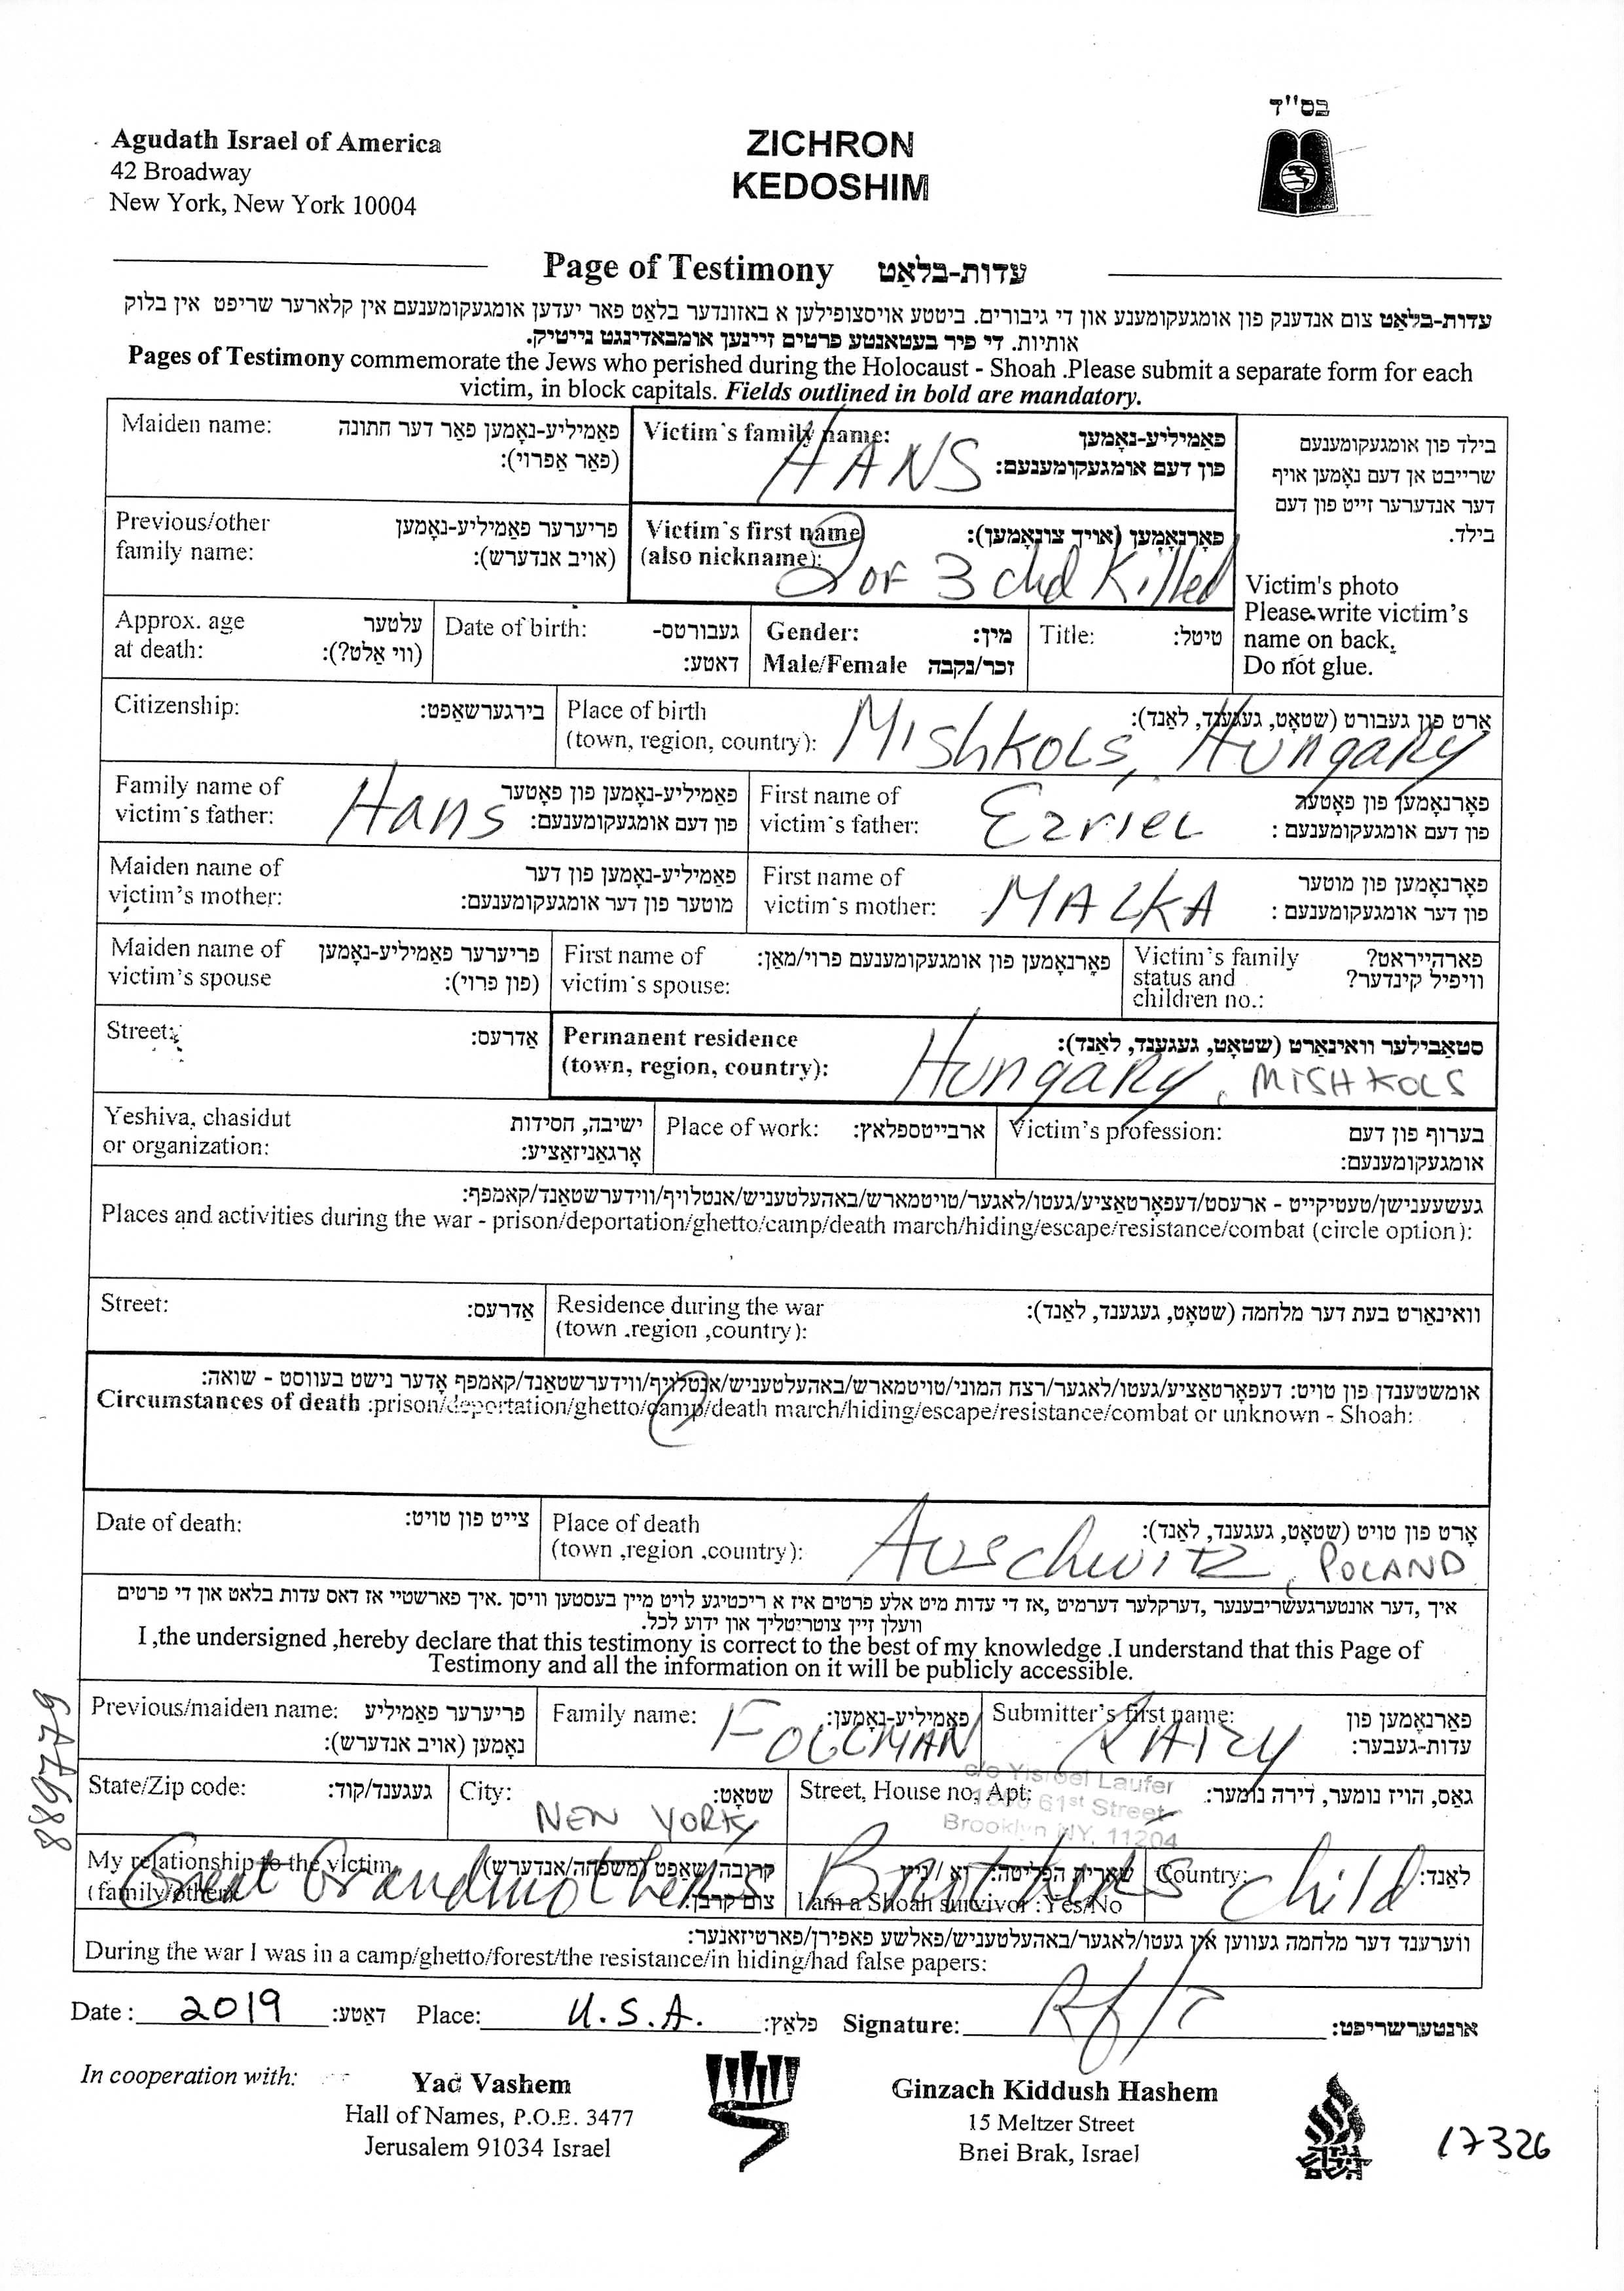 בס"ד
Agudath Israel of America
42 Broadway
New York, New York 10004
ZICHRON
KEDOSHIM
Page of Testimony עדות-בלאַט
עדות-בלאַט צום אנדענק פון אומגעקומענע און די גיבורים. ביטע אויסצופילען א באזונדער בלאט פאר יעדען אומגעקומענעם אין קלארער שריפט אין בלוק
אותיות. די פיר בעטאנטע פרטים זיינען אומבאדינגט נייטיק.
Pages of Testimony commemorate the Jews who perished during the Holocaust - Shoah .Please submit a separate form for each
victim, in block capitals. Fields outlined in bold are mandatory.
Maiden name: פאַמיליע-נאָמען פאר דער חתונה
(פאר אַפרוי):
Victim's family name: פאַמיליע-נאָמען
פון דעם אומגעקומענעם:
HANS
בילד פון אומגעקומענעם
שרייבט אן דעם נאָמען אויף
דער אנדערער זייט פון דעם
בילד.
Victim's photo
Please write victim's
name on back.
Do not glue.
Previous/other
family name:
פריערער פאַמיליע-נאָמען
(אויב אנדערש):
Victim's first name
(also nickname):
פאָרנאָמען (אויך צונאָמען):
2 OF 3 chd Killed
Approx. age
at death:
עלטער
(ווי אַלט?):
Date of birth: געבורטס-
דאַטע:
Gender: מין:
Male/Female זכר/נקבה
Title: טיטל:
Citizenship: בירגערשאַפט:
Place of birth
(town, region, country):
אָרט פון געבורט (שטאָט, געגענד, לאַנד):
MIShKOLS, HUngaRy
Family name of
victim's father:
פאַמיליע-נאָמען פון פאָטער
פון דעם אומגעקומענעם:
Hans
First name of
victim's father:
פאָרנאָמען פון פאָטער
פון דעם אומגעקומענעם :
Ezriel
Maiden name of
victim's mother:
פאַמיליע-נאָמען פון דער
מוטער פון דער אומגעקומענעם:
First name of
victim's mother:
פאָרנאָמען פון מוטער
פון דער אומגעקומענעם :
MALKA
Maiden name of
victim's spouse
פריערער פאַמיליע-נאָמען
(פון פרוי):
First name of
victim's spouse:
פאָרנאָמען פון אומגעקומענעם פרוי/מאַן:
Victim's family
status and
children no.:
פארהייראט?
וויפיל קינדער?
Street: אַדרעס:
Permanent residence
(town, region, country):
סטאַבילער וואוינאָרט (שטאָט, געגענד, לאַנד):
HUngaRy, MISHKOLS
Yeshiva, chasidut
or organization:
ישיבה, חסידות
אָרגאַניזאַציע:
Place of work: ארבייטספלאַץ:
Victim's profession: בערוף פון דעם
אומגעקומענעם:
געשעענישן/טעטיקייט - ארעסט/דעפאָרטאַציע/געטו/לאגער/טויטמארש/באהעלטעניש/אנטלויף/ווידערשטאַנד/קאמפף:
Places and activities during the war - prison/deportation/ghetto/camp/death march/hiding/escape/resistance/combat (circle option):
Street: אַדרעס:
Residence during the war
(town .region ,country):
וואוינאָרט בעת דער מלחמה (שטאָט, געגענד, לאַנד):
אומשטענדן פון טויט: דעפאָרטאַציע/געטו/לאגער/רצח המוני/טויטמארש/באהעלטעניש/אנטלויף/ווידערשטאַנד/קאמפף אָדער נישט בעווסט - שואה:
Circumstances of death :prison/deportation/ghetto/camp/death march/hiding/escape/resistance/combat or unknown - Shoah:
Date of death: צייט פון טויט:
Place of death
(town ,region .country):
אָרט פון טויט (שטאָט, געגענד, לאַנד):
Auschwitz, POLAND
איך ,דער אונטערגעשריבענער ,דערקלער דערמיט ,אז די עדות מיט אלע פרטים איז א ריכטיגע לויט מיין בעסטען וויסן .איך פארשטיי אז דאס עדות בלאט און די פרטים
וועלן זיין צוטריטליך און ידוע לכל.
I ,the undersigned ,hereby declare that this testimony is correct to the best of my knowledge .I understand that this Page of
Testimony and all the information on it will be publicly accessible.
8869779
Previous/maiden name: פריערער פאַמיליע
נאָמען (אויב אנדערש):
Family name: פאַמיליע-נאָמען:
FOLLMAN
Submitter's first name: פאַרנאָמען פון
עדות-געבער:
State/Zip code: געגענד/קוד:
City: שטאָט:
NEW YORK
Street, House no, Apt: גאַס, הויז נומער, דירה נומער:
c/o Yisroel Laufer
61st Street
Brooklyn NY, 11204
My relationship to the victim
(family/other)
קרובה/שאַפט (משפחה/אנדערש)
צום קרבן:
שארית הפליטה:
I am a Shoah survivor : Yes/No
Country: לאַנד:
Great Grandmother's Brother's child
ווערענד דער מלחמה געווען אין געטו/לאגער/באהעלטעניש/פאלשע פאפירן/פארטיזאנער:
During the war I was in a camp/ghetto/forest/the resistance/in hiding/had false papers:
Date : 2019 דאַטע: Place: U.S.A. פלאַץ: Signature: אונטערשריפט:
In cooperation with:
Yad Vashem
Hall of Names, P.O.B. 3477
Jerusalem 91034 Israel
Ginzach Kiddush Hashem
15 Meltzer Street
Bnei Brak, Israel
גנזך
קידוש
השם
17326